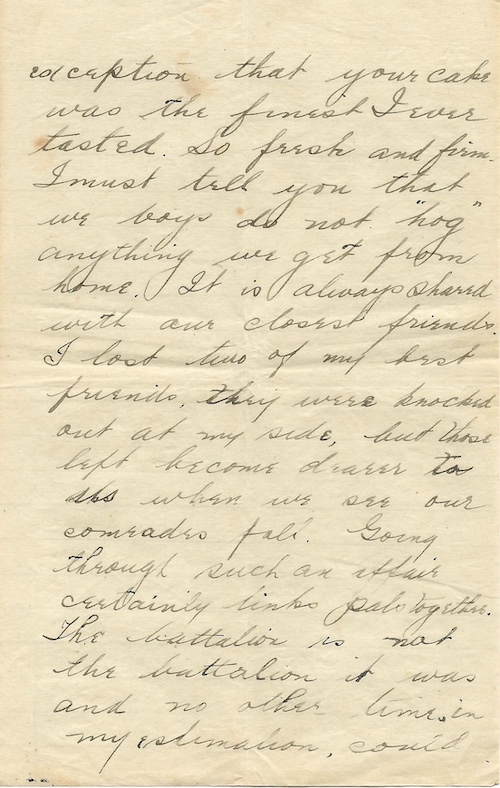 exception that your cake
was the finest I ever
tasted. So fresh and firm.
I must tell you that
we boys do not "hog"
anything we get from
home. It is always shared
with our closest friends.
I lost two of my best
friends, they were knocked
out at my side, but those
left become dearer to
us when we see our
comrades fall. Going
through such an affair
certainly links pals together.
The battalion is not
the battalion it was
and no other time, in
my estimation, could